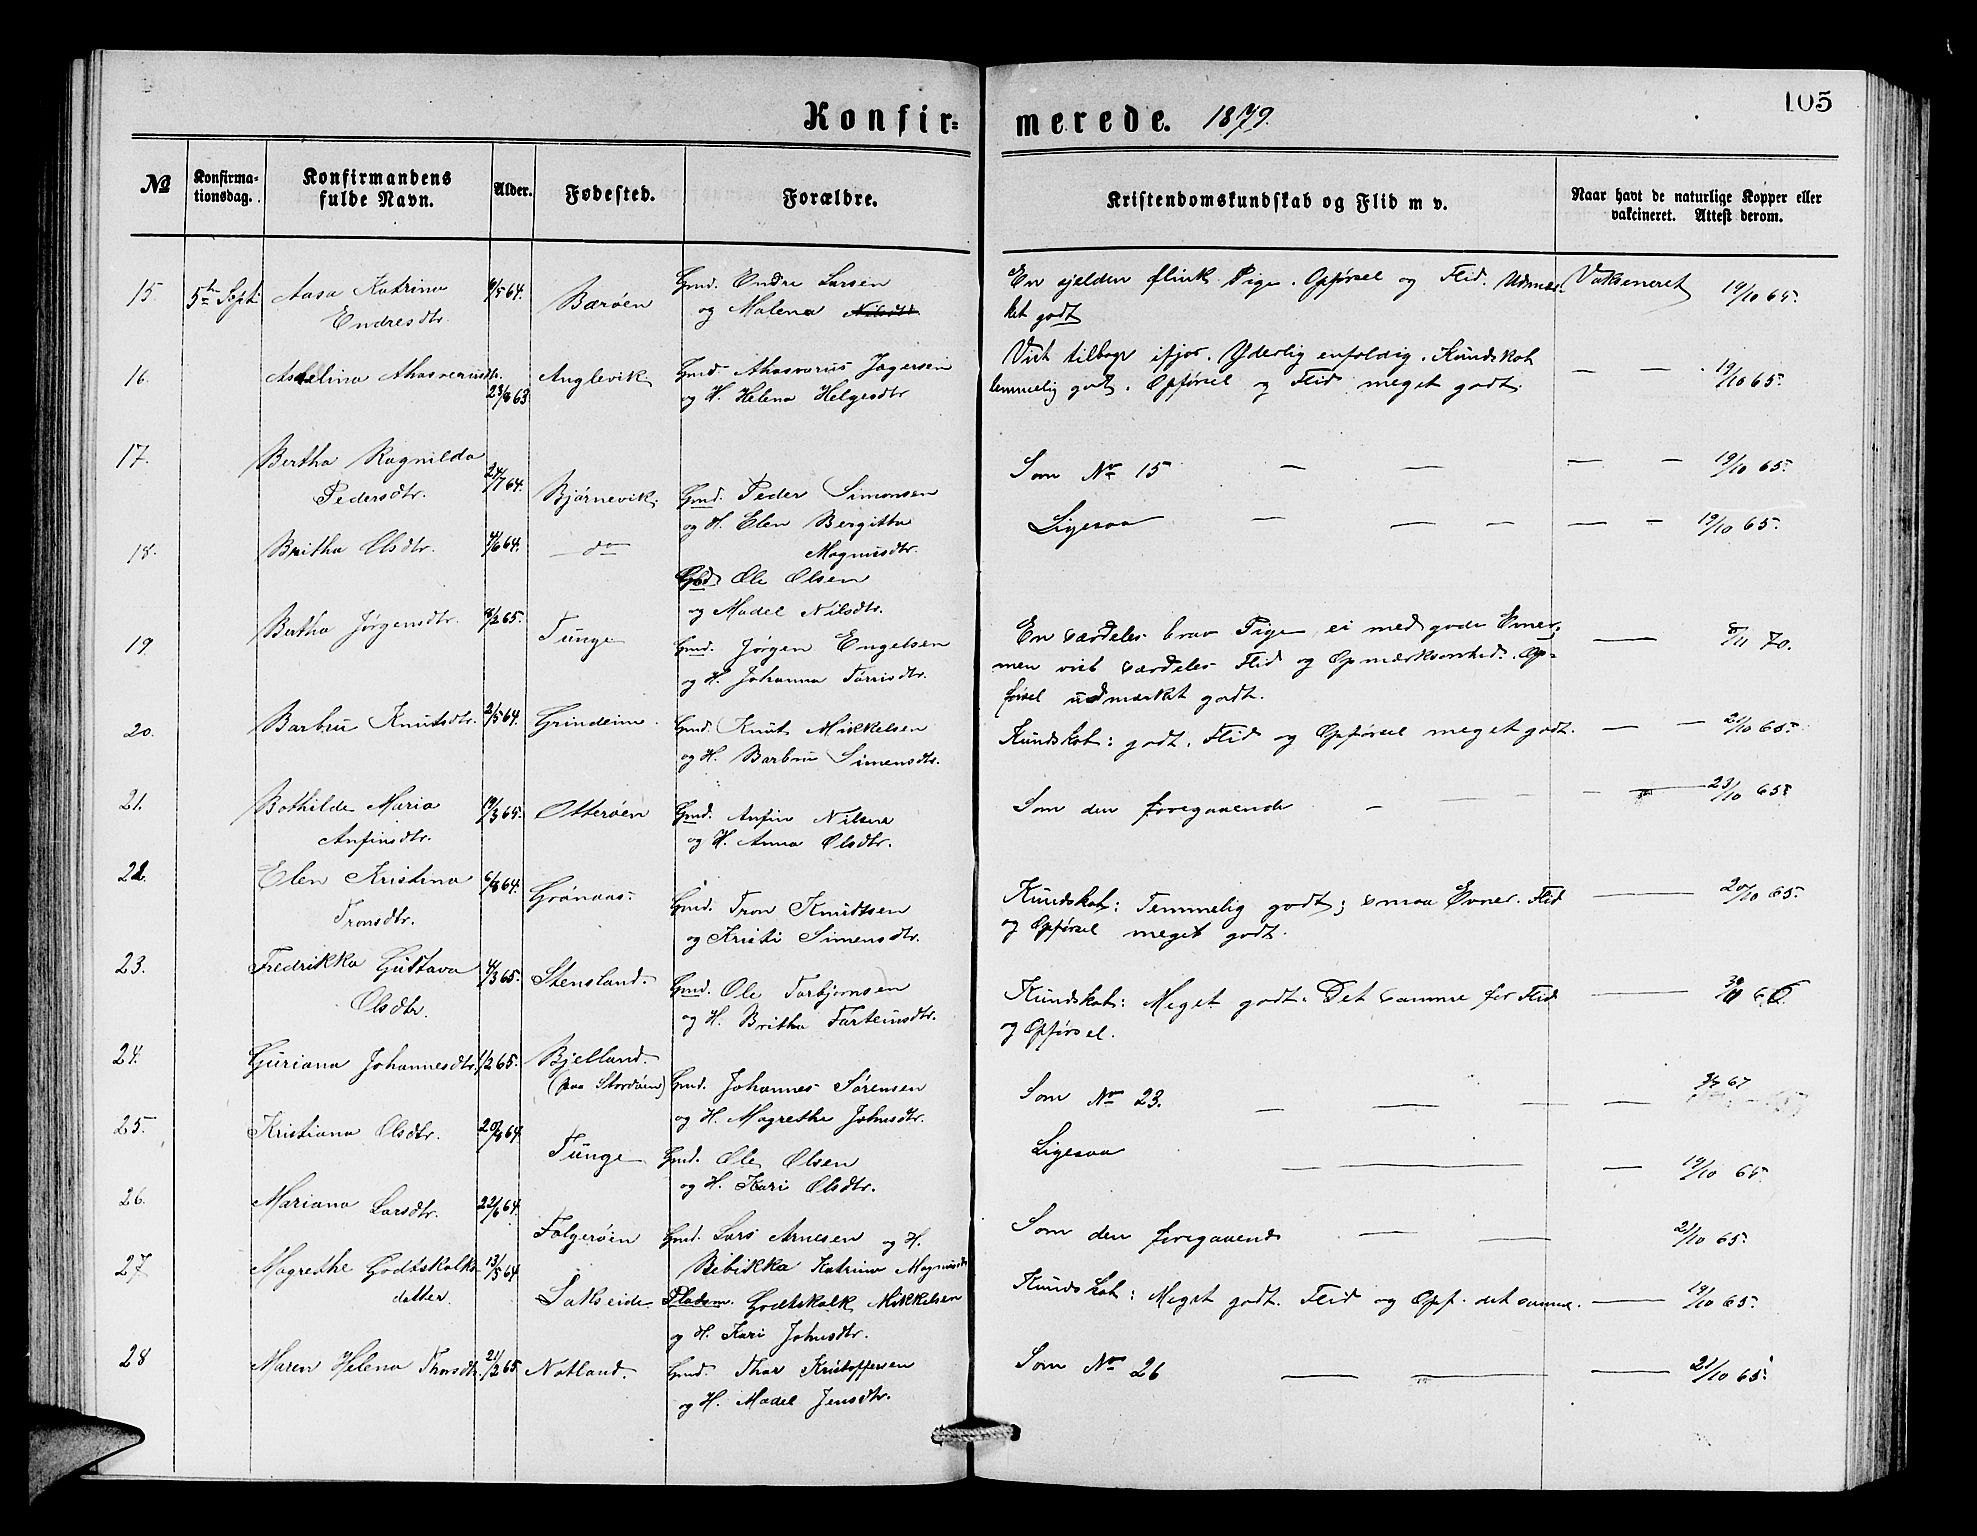 105
Konfir= merede. 1879.
№
Konfirma=
tionsdag.
Konfirmandens
fulde Navn.
Alder.
Fødested.
Forældre.
Kristendomskundskab og Flid m v.
Naar havt de naturlige Kopper eller
vakcineret. Attest derom.
15. 5te Sept. Aasa Katrina 64. Bærøen Gmd. Endre Larsen En sjelden flink Pige. Opførsel og Flid. Udmær- Vakseneret 19/10 65.
Endresdtr. og Malena ket godt
16. Ahasverusdtr. 23/8 63 Anglevik Gmd. Ahasverus Jagersen Vist tilbage ifjor. Yderlig enfoldig. Kundskab — — 19/10 65.
og H. Helena Helgesdtr temmelig godt. Opførsel og Flid meget godt.
17. Bertha Ragnilda 24/7 64. Bjørnevik Gmd. Peder Simonsen Som No 15 — — — — 19/10 65.
Pedersdtr. og H. Elen Bergitha
Magnusdtr.
18. Britha Olsdtr. 64. — do — Ole Olsen Ligesaa — — — — — 19/10 65.
og Madel Nilsdtr.
19 Bertha Jørgensdtr. 8/2 65. Tunge Gmd. Jørgen Engelsen En særdeles brav Pige ei med gode Evner; — 8/11 70.
og H. Johanna Tørrisdtr. men vist særdeles Flid og Opmærksomhed. Op=
førsel udmærket godt.
20. Barbru Knutsdtr. 2/5 64. Grindeim. Gmd. Knut Mikkelsen Kundskab: godt. Flid og Opførsel meget godt. — — 21/10 65.
og H. Barbru Simensdtr.
21. Bothilde Maria 19/3 65. Otterøen Gmd. Anfin Nilsen Som den foregaaende — — — — 23/10 65.
Anfinsdtr. og H. Anna Olsdtr.
22. Elen Kristina 6/8 64. Grønaas. Gmd. Tron Knudtsen Kundskab: Temmelig godt; smaa Evner. Flid — 20/10 65.
Tronsdtr. og Kristi Simensdtr. og Opførsel meget godt.
23. Fredrikka Gustava 4/3 65. Stensland. Gmd. Ole Torbjørnsen Kundskab: Meget godt. Det samme for Flid —
Olsdtr. og H. Britha Tarteinsdtr. og Opførsel.
24. Guriana Johannesdtr. 1/2 65. Bjelland
(paa Stordøen) Gmd. Johannes Sørensen Som No 23. — — — — — 67
og H. Magretha Johnsdtr.
25. Kristiana Olsdtr. 64. Tunge Gmd. Ole Olsen Ligesaa — — — 19/10 65.
og H. Kari Olsdtr.
26. Mariana Larsdtr. 22/6 64. Folgerøen Gmd. Lars Arnesen og H. Som den foregaaende — — 21/10 65.
Bibikka Katrina Magnusdtr
27 Magrethe Godtskalks 13/5 64 Lakseide Pladsm. Godtskalk Mikkelsen Kundskab: Meget godt. Flid og Opf. det samme. — 19/10 65.
datter. og H. Kari Johnsdtr.
28 Maren Helena Thorsdtr. 21/2 65. Natland. Gmd. Thor Kristoffersen Som No 26 — — — 21/10 65.
og H. Madel Jensdtr.